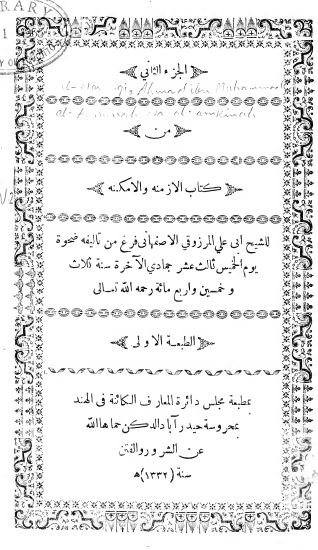 RARY
1
الجزء الثاني
من
كتاب الازمنه والامكنه
للشيخ ابى علي المرزوقي الاصفهاني فرغ من تاليفه ضحوة
يوم الخميس ثالث عشر جمادي الآخرة سنة ثلاث
و خمسين واربع مائة رحمه الله تعالى
الطبعة الاولى
بمطبعة مجلس دائرة المعارف الكائنة في الهند
بمحروسة حيدر آباد الدكن حماها الله
عن الشرور والفتن
سنة (١٣٣٢) ه